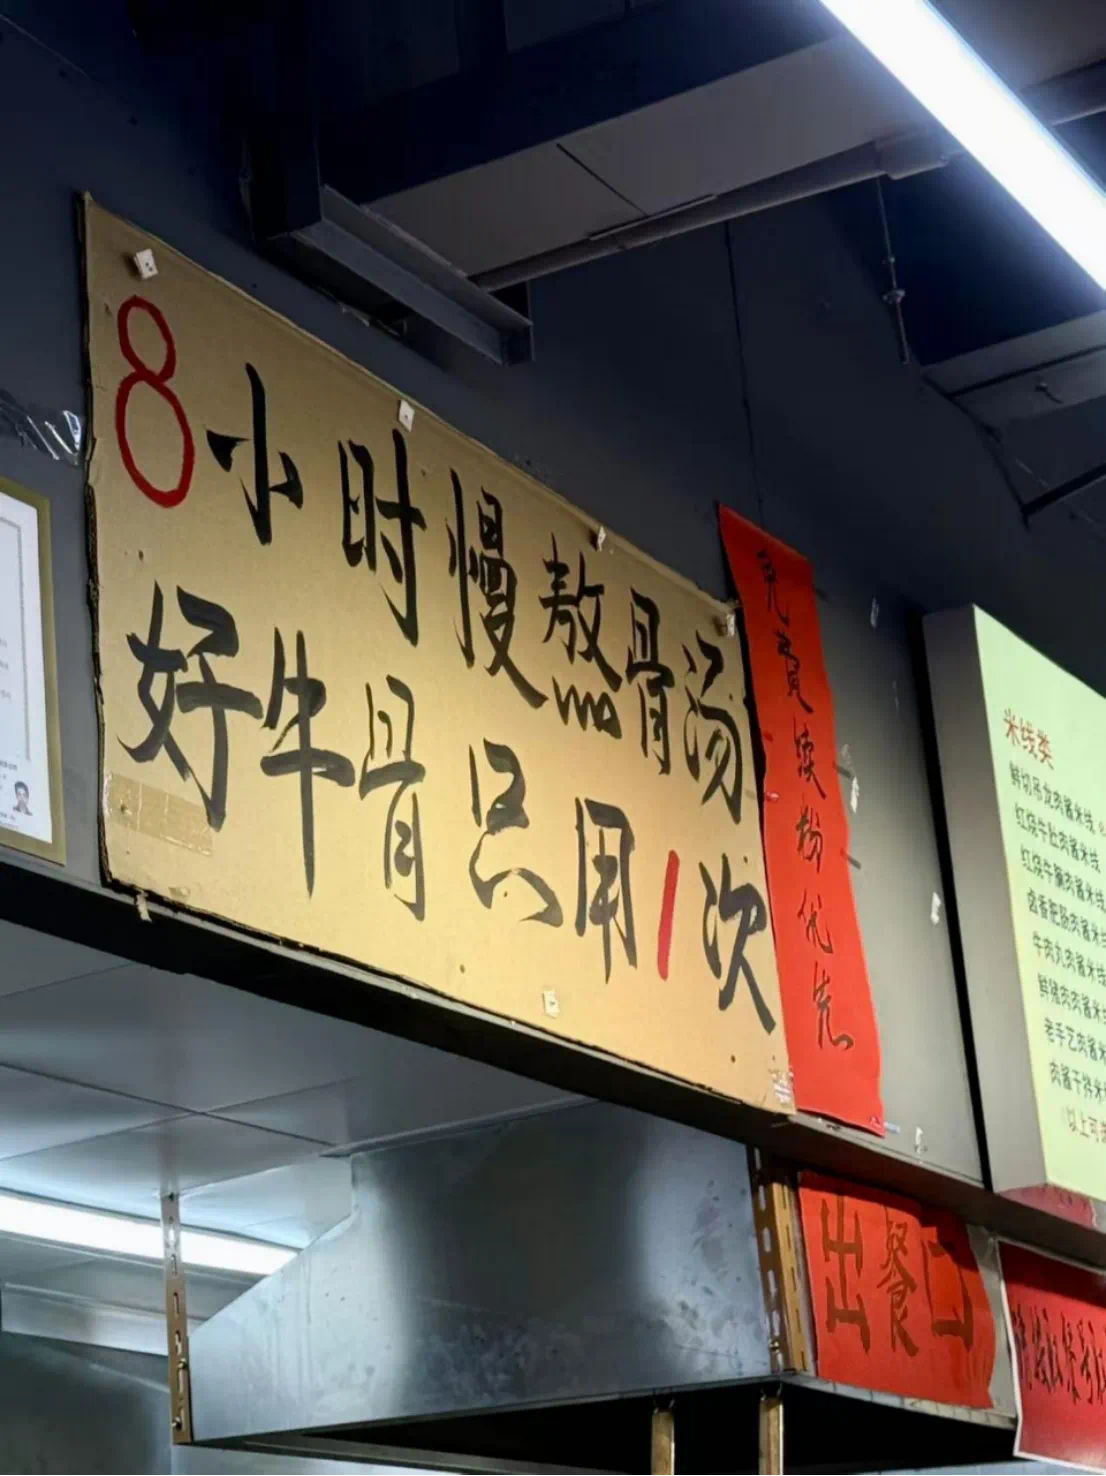 8小时慢熬骨汤
好牛骨只用1次
免費续粉优先
米线类
鲜切吊龙肉酱米线
红烧牛肚肉酱米线
红烧牛腩肉酱米线
卤香肥肠肉酱米线
牛肉丸肉酱米线
鲜猪肉肉酱米线
老手艺肉酱米
肉酱干拌米
（以上可
出餐口